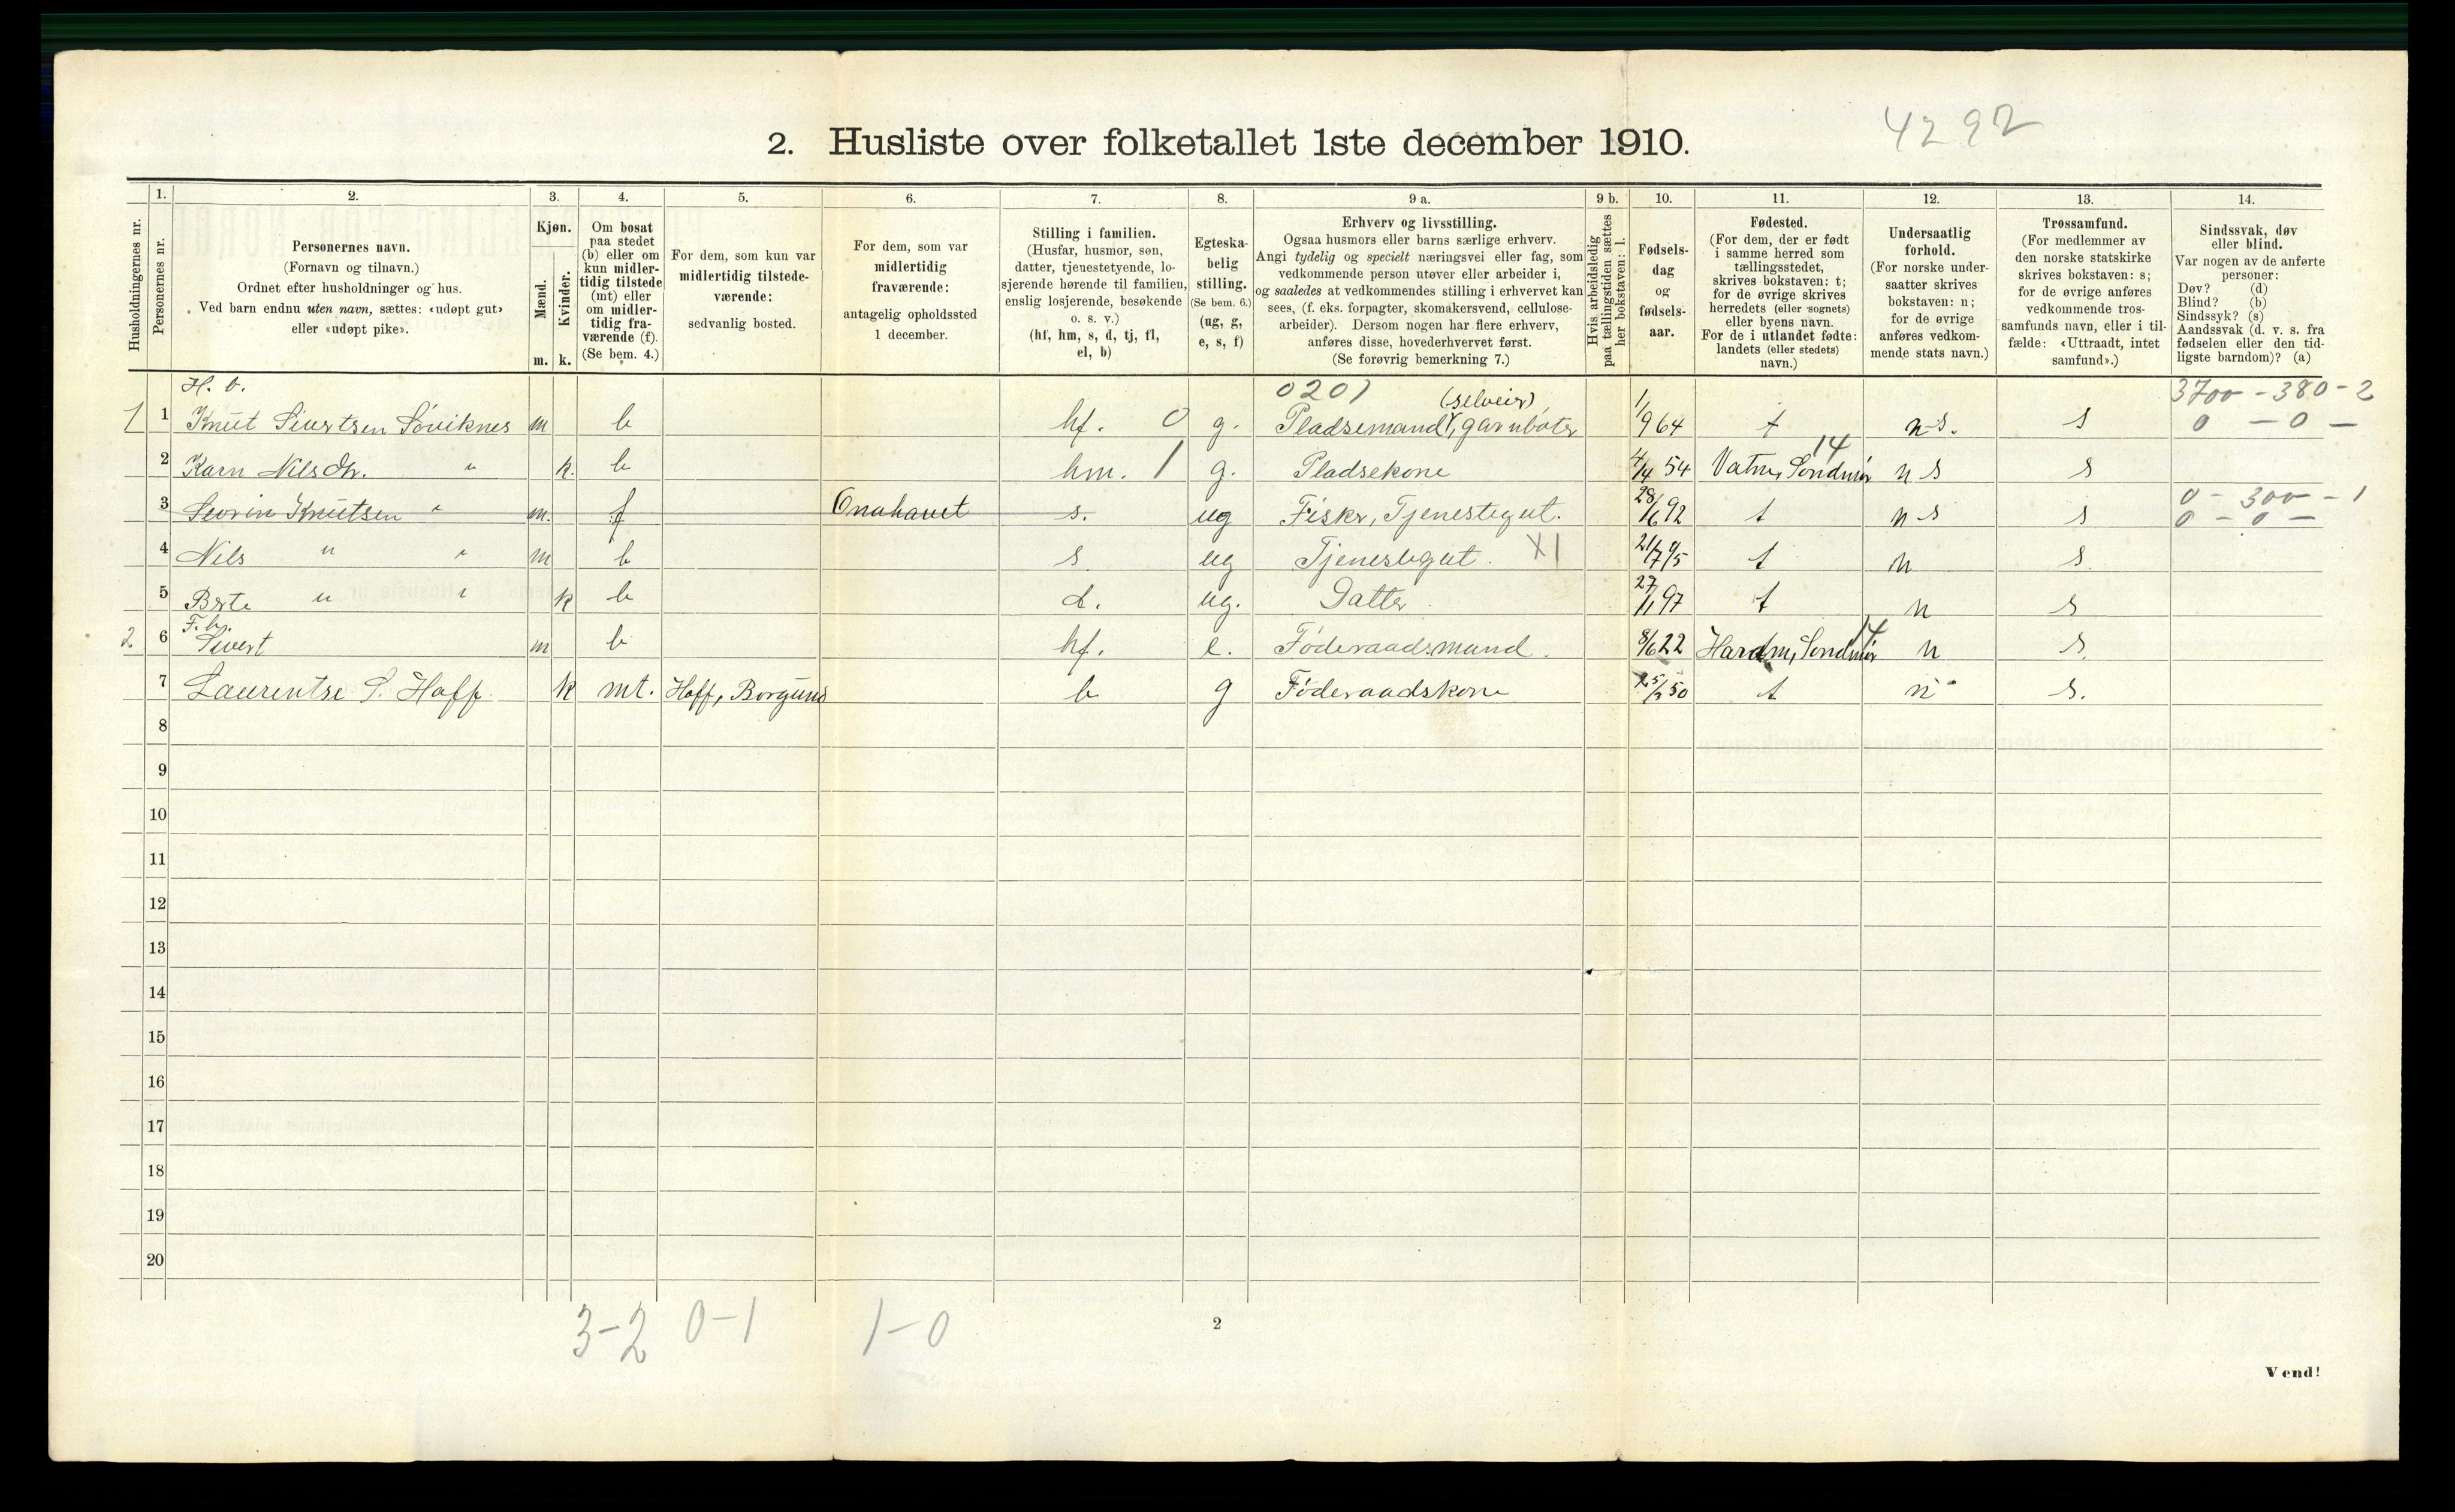 4292
2. Husliste over folketallet 1ste december 1910.
Husholdningernes nr.
1.
Personernes nr.
2.
Personernes navn.
(Fornavn og tilnavn.)
Ordnet efter husholdninger og hus.
Ved barn endnu uten navn, sættes: «udøpt gut»
eller «udøpt pike».
3.
Kjøn.
Mænd.
Kvinder.
m. k.
4.
Om bosat
paa stedet
(b) eller om
kun midler-
tidig tilstede
(mt) eller
om midler-
tidig fra-
værende (f).
(Se bem. 4.)
5.
For dem, som kun var
midlertidig tilstede-
værende:
sedvanlig bosted.
6.
For dem, som var
midlertidig
fraværende:
antagelig opholdssted
1 december.
7.
Stilling i familien.
(Husfar, husmor, søn,
datter, tjenestetyende, lo-
sjerende hørende til familien,
enslig losjerende, besøkende
o. s. v.)
(hf, hm, s, d, tj, fl,
el, b)
8.
Egteska-
belig
stilling.
(Se bem. 6.)
(ug, g,
e, s, f)
9 a.
Erhverv og livsstilling.
Ogsaa husmors eller barns særlige erhverv.
Angi tydelig og specielt næringsvei eller fag, som
vedkommende person utøver eller arbeider i,
og saaledes at vedkommendes stilling i erhvervet kan
sees, (f. eks. forpagter, skomakersvend, cellulose-
arbeider). Dersom nogen har flere erhverv,
anføres disse, hovederhvervet først.
(Se forøvrig bemerkning 7.)
9 b.
Hvis arbeidsledig
paa tællingstiden sættes
her bokstaven: l.
10.
Fødsels-
dag
og
fødsels-
aar.
11.
Fødested.
(For dem, der er født
i samme herred som
tællingsstedet,
skrives bokstaven: t;
for de øvrige skrives
herredets (eller sognets)
eller byens navn.
For de i utlandet fødte:
landets (eller stedets)
navn.)
12.
Undersaatlig
forhold.
(For norske under-
saatter skrives
bokstaven: n;
for de øvrige
anføres vedkom-
mende stats navn.)
13.
Trossamfund.
(For medlemmer av
den norske statskirke
skrives bokstaven: s;
for de øvrige anføres
vedkommende tros-
samfunds navn, eller i til-
fælde: «Uttraadt, intet
samfund».)
14.
Sindssvak, døv
eller blind.
Var nogen av de anførte
personer:
Døv? (d)
Blind? (b)
Sindssyk? (s)
Aandssvak (d. v. s. fra
fødselen eller den tid-
ligste barndom)? (a)
H. b. 0201 (selveir) 3700 - 380 - 2
1 1 Knut Sivertsen Søviknes m b hf. 0 g. Pladsemand, garnbøter 1/9 64 t n-s. s 0 - 0 -
2 Karn Nilsdtr. " k. b hm. 1 g. Pladsekone 4/4 54 Vatne, Søndmør 14 n s s
3 Sevrin Knutsen " m. f Onahavet s. ug Fisker, Tjenestegut. 28/6 92 t n s s 0 - 300 - 1
0 - 0 -
4 Nils " " m b s ug Tjenestegut. X1 21/7 95 t n s.
5 Berte " " k b d. ug. Datter 27/11 97 t n s
F. b.
2. 6 Sivert m b hf. e. Føderaadsmand. 8/6 22 Haram, Søndmør 14 n s.
7 Laurentse S. Hoff k mt. Hoff, Borgund b g Føderaadskone 25/2 50 t n s.
8
9
10
11
12
13
14
15
16
17
18
19
20
3-2 0-1 1-0
2
Vend!